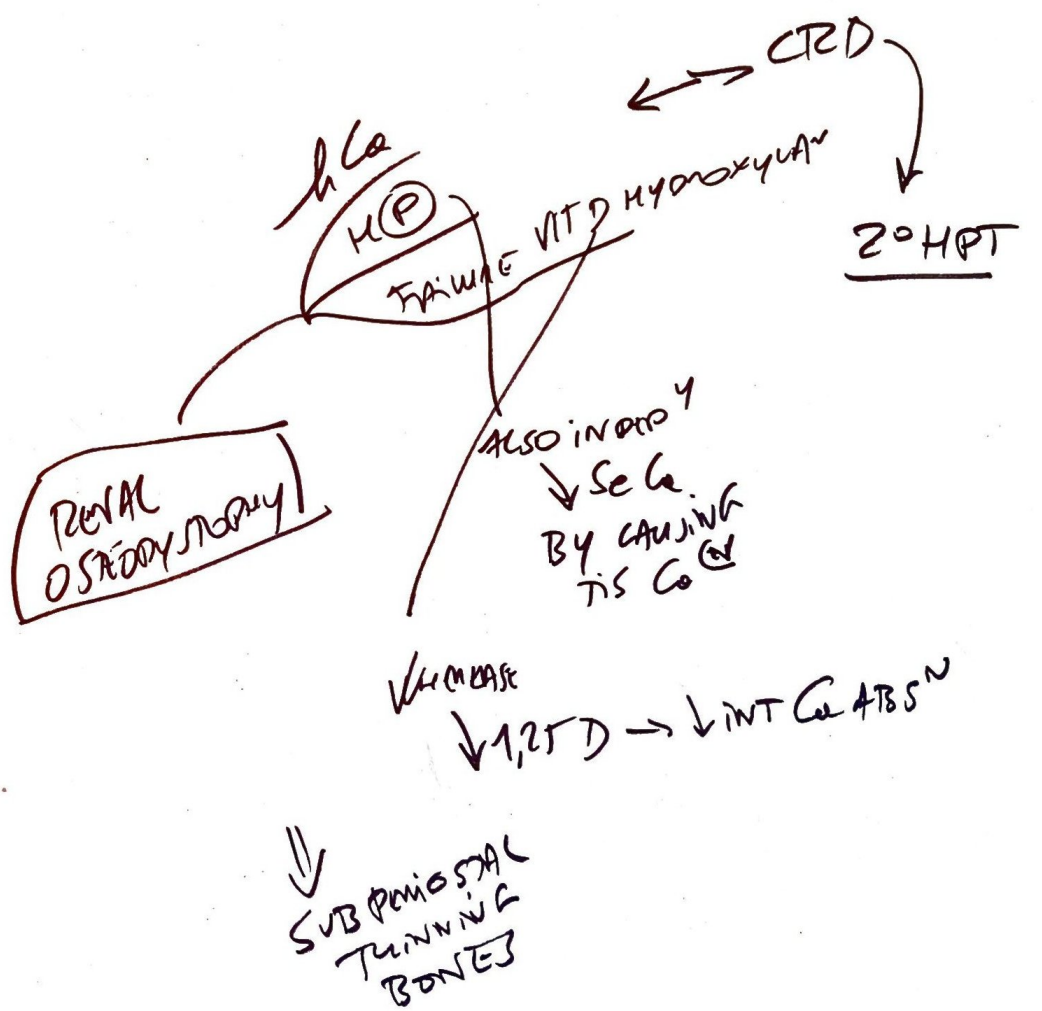 CRD
2° HPT
h Ca
H P
FAILURE VIT D HYDROXYLAN
RENAL
OSTEODYSTROPHY
ALSO INDEP Y
↓ Se Ca
BY CAUSING
TIS Ca N
↓ 1,25 D → ↓ INT Ca ABS N
⇓
SUBPERIOSTAL
THINNING
BONES